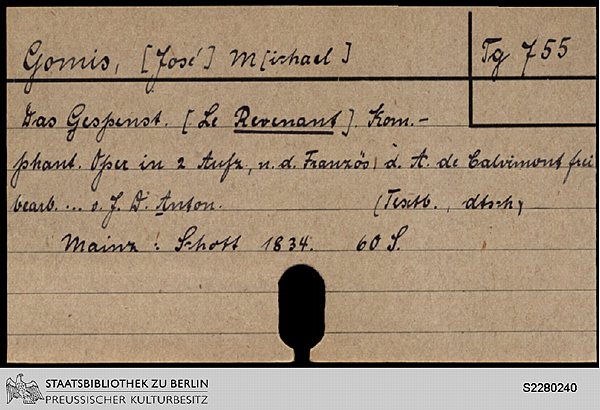 Gomis, [José] M[ichael]
Tg 755
Das Gespenst. [Le Revenant]. Kom.-
phant. Oper in 2 Aufz., n. d. Französ. d. A. de Calvimont frei
bearb. ... v. J. D. Anton. (Textb., dtsch.)
Mainz: Schott 1834. 60 S.
STAATSBIBLIOTHEK ZU BERLIN
PREUSSISCHER KULTURBESITZ
S2280240